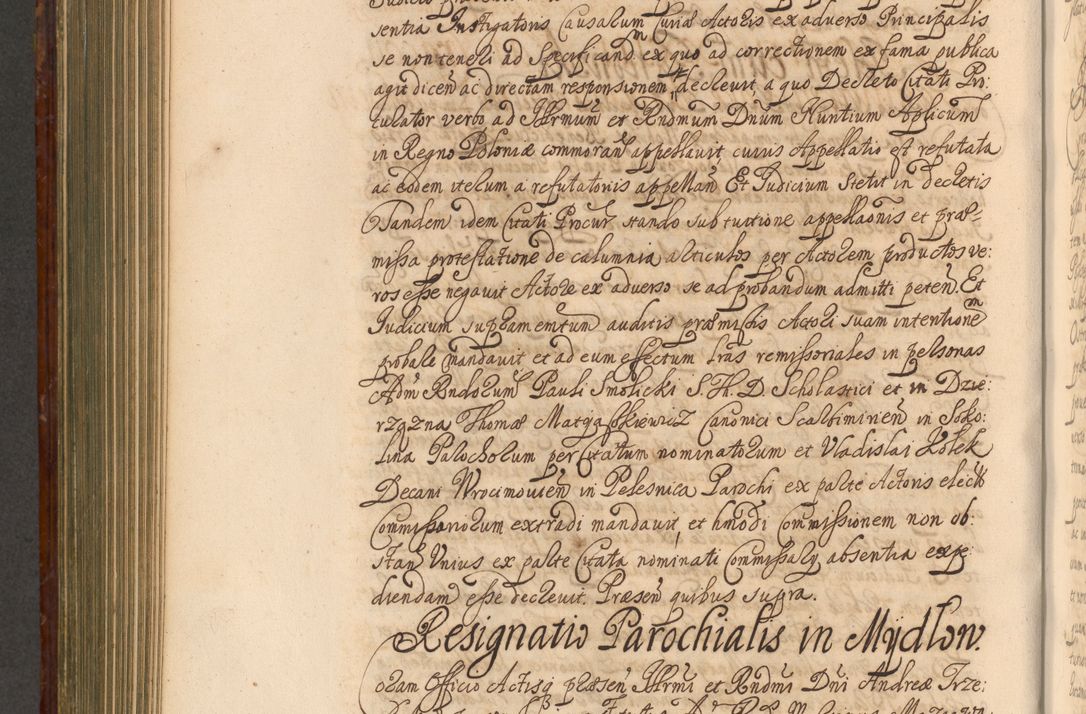 sentia Instigatoris Causarum Curiæ Actoris ex adverso Principalis
se non teneri ad Specificand ex quo ad correctionem ex fama publica
agit dicen̄ ac directam responsionem decrevit, a quo Decreto Citati Pro:
curator verbo ad Illrmum̄ et Rndmum̄ Dnum̄ Nuntium Aplicum̄
in Regno Poloniæ commoran̄ appellavit, cuius Appellatio est refutata
ac eodem iterum a refutatoriis appellan̄ Et Iudicium Stetit in decretis
Tandem idem Citati Procur̄ stando sub tuitione appellaōnis et præ-
missa protestatione de calumnia articulos per Actorem productos ve:
ros esse negavit Actore ex adverso se ad probandum admitti peten̄. Et
Iudicium supramemtum auditis præmissis Actori suam intentionē
probare mandavit et ad eum effectum lrās remissoriales in personas
Adm̄ Rndorum̄ Pauli Smolicki S. Th. D. Scholastici et in Dzie:
rząźna Thomæ Matyaszkiewicz Canonici Scalbimirien̄ in Soko:
lina Parochorum per Citatum nominatorum et Vladislai Rołek
Decani Wrocimovien̄ in Pelesnica Parochi ex parte Actoris elect
Commissariorum extradi mandavit et hmodi Commissionem non ob:
stan̄ Unius ex parte Citata nominati Commissarÿ absentia expe
diendam esse decrevit. Præsen̄ quibus supra.
Resignatio Parochialis in Mÿdlow.
Coram Officio Actisq præsen̄ Illrmi et Rndmi Dni Andreæ Trze: